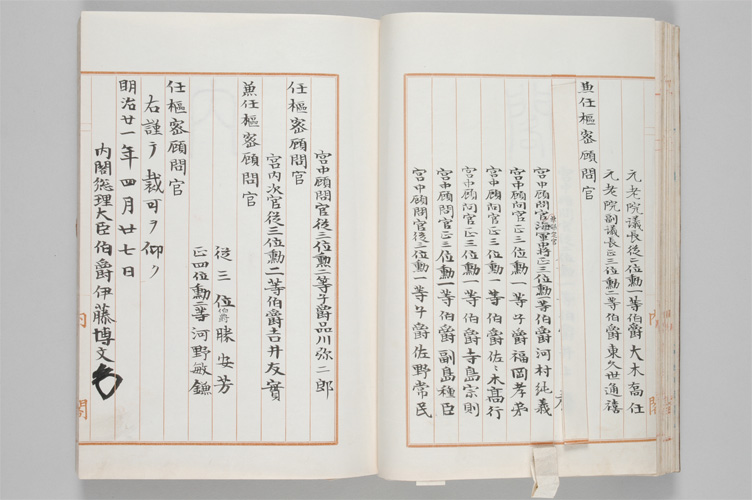 元老院議長従二位勲一等伯爵大木喬任
元老院副議長正三位勲二等伯爵東久世通禧
兼任枢密顧問官
宮中顧問官海軍中将正三位勲一等伯爵河村純義
宮中顧問官正三位勲一等子爵福岡孝弟
宮中顧問官正三位勲一等伯爵佐々木高行
宮中顧問官正三位勲一等伯爵寺島宗則
宮中顧問官正三位勲一等伯爵副島種臣
宮中顧問官従三位勲一等子爵佐野常民
宮中顧問官従三位勲二等子爵品川弥二郎
任枢密顧問官
宮内次官従三位勲二等伯爵吉井友實
兼任枢密顧問官
従三位伯爵勝安芳
正四位勲三等河野敏鎌
任枢密顧問官
右謹テ裁可ヲ仰ク
明治廿一年四月廿七日
内閣總理大臣伯爵伊藤博文
内閣